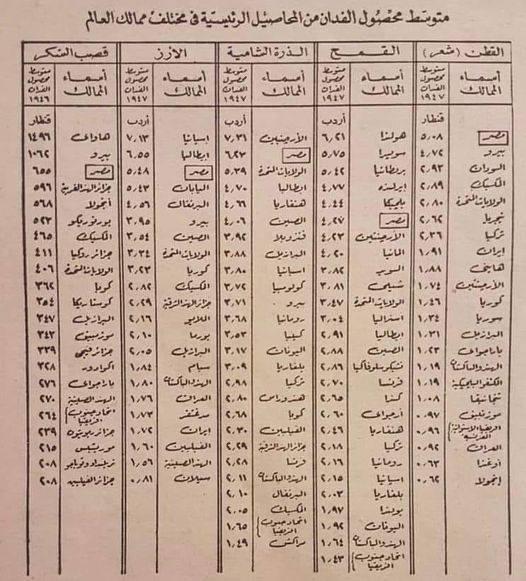 متوسط محصول الفدان من المحاصيل الرئيسية فى مختلف ممالك العالم
القطن (شعر)
أسماء الممالك متوسط محصول الفدان ١٩٤٧
قنطار
مصر ٥٫٠٨
بيرو ٤٫٧٢
السودان ٢٫٩٣
المكسيك ٢٫٨٩
الولايات المتحدة ٢٫٨٠
نيجريا ٢٫٦٢
تركيا ٢٫٣٦
ايران ١٫٩١
هايتى ١٫٨٨
الأرجنتين ١٫٧٤
كوريا ١٫٤٦
سوريا ١٫٣٤
البرازيل ١٫٣١
باراجواى ١٫٢٣
الهند والباكستان ١٫١٩
الكنغو البلجيكية ١٫١٩
تنجانيقا ١٫٠٨
موزنبيق ٠٫٩٧
افريقيا الاستوائية الفرنسية ٠٫٩٦
العراق ٠٫٩٢
أوغندا ٠٫٦٣
انجولا ٠٫٦٢
القمح
أسماء الممالك متوسط محصول الفدان ١٩٤٧
أردب
هولندا ٦٫٢١
سويسرا ٥٫٧٥
بريطانيا ٥٫٤٢
ايرلنده ٤٫٧٧
بلجيكا ٤٫٤٤
مصر ٤٫٢٧
الأرجنتين ٤٫٢٣
المانيا ٤٫٢٠
السويد ٣٫٨٢
شيلى ٣٫٨١
الولايات المتحدة ٣٫٤٧
استراليا ٣٫٠٤
ايطاليا ٢٫٩١
الصين ٢٫٨٨
تشيكوسلوفاكيا ٢٫٨٦
فرنسا ٢٫٧٠
كندا ٢٫٦٥
أرجواى ٢٫٦٠
هنغاريا ٢٫٤٦
تركيا ٢٫١٨
رومانيا ٢٫١٦
اسبانيا ٢٫١٥
بلغاريا ٢٫٠٣
بولندا ١٫٩٧
اليونان ١٫٩٢
الهند والباكستان ١٫٦٤
اتحاد جنوب افريقيا ١٫٤٣
الذرة الشامية
أسماء الممالك متوسط محصول الفدان ١٩٤٧
أردب
الأرجنتين ٧٫٣١
مصر ٦٫٢٣
الولايات المتحدة ٥٫٣٩
ايطاليا ٤٫٧٠
هنغاريا ٤٫٦٦
الصين ٤٫٠٦
فنزويلا ٣٫٩٢
البرازيل ٣٫٨٨
اسبانيا ٣٫٨٠
كولومبيا ٣٫٧٢
بيرو ٣٫٧١
رومانيا ٣٫٦٨
كينيا ٣٫٥٣
اليونان ٣٫١٧
بلغاريا ٣٫٠٩
تركيا ٢٫٩٨
هندوراس ٢٫٨٠
كوبا ٢٫٦٨
الفيلبين ٢٫٣٠
جزائر الهند الشرقية ٢٫٢٩
فرنسا ٢٫٢٨
الهند والباكستان ٢٫١١
البرتغال ٢٫١٠
المكسيك ٢٫٠٥
اتحاد جنوب افريقيا ١٫٦٥
مراكش ١٫٤٩
الأرز
أسماء الممالك متوسط محصول الفدان ١٩٤٧
أردب
اسبانيا ٧٫١٣
ايطاليا ٦٫٥٥
مصر ٥٫٤٨
اليابان ٥٫٤٣
البرتغال ٤٫٥٦
بيرو ٣٫٩٥
الصين ٣٫٥٤
الولايات المتحدة ٣٫٣٤
كوريا ٣٫٢٣
المكسيك ٢٫٨٢
جزائر الهند الشرقية ٢٫٢٩
الملايو ٢٫١٦
بورما ٢٫١٠
البرازيل ٢٫٠٥
سيام ١٫٨٤
الهند والباكستان ١٫٨٠
العراق ١٫٧٦
مدغشقر ١٫٧٣
ايران ١٫٧٢
الفيلبين ١٫٦٠
الهند الصينية ١٫٥٦
سيلان ٠٫٨١
قصب السكر
أسماء الممالك متوسط محصول الفدان ١٩٤٦
قنطار
هاواى ١٤٩٦
بيرو ١٠٦٢
مصر ٦٥٥
جزائر الهند الغربية ٥٩٦
أنجولا ٥٦٨
بورتوريكو ٥٢٣
المكسيك ٤٦٥
جزائر ٤١١
الولايات المتحدة ٤٠٦
كوبا ٣٦٢
كوستاريكا ٣٥٤
البرازيل ٣٤٧
موزمبيق ٣٤٣
جزائر فيجى ٣٣٩
اكوادور ٣٢٨
باراجواى ٢٧٦
الهند الصينية ٢٧٠
اتحاد جنوب افريقيا ٢٦٤
جزائر ٢٣٩
موريتيس ٢١٥
ترينيداد وتوباجو ٢٠٨
جزائر الفيلبين ٢٠٨